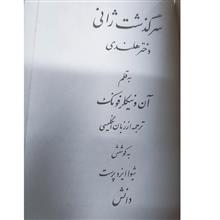 سرگذشت ژانی
دختر هلندی
به قلم
آن و نیکلر فونک
ترجمه از زبان انگلیسی
به کوشش
شیوا ایزدپرست
دانش